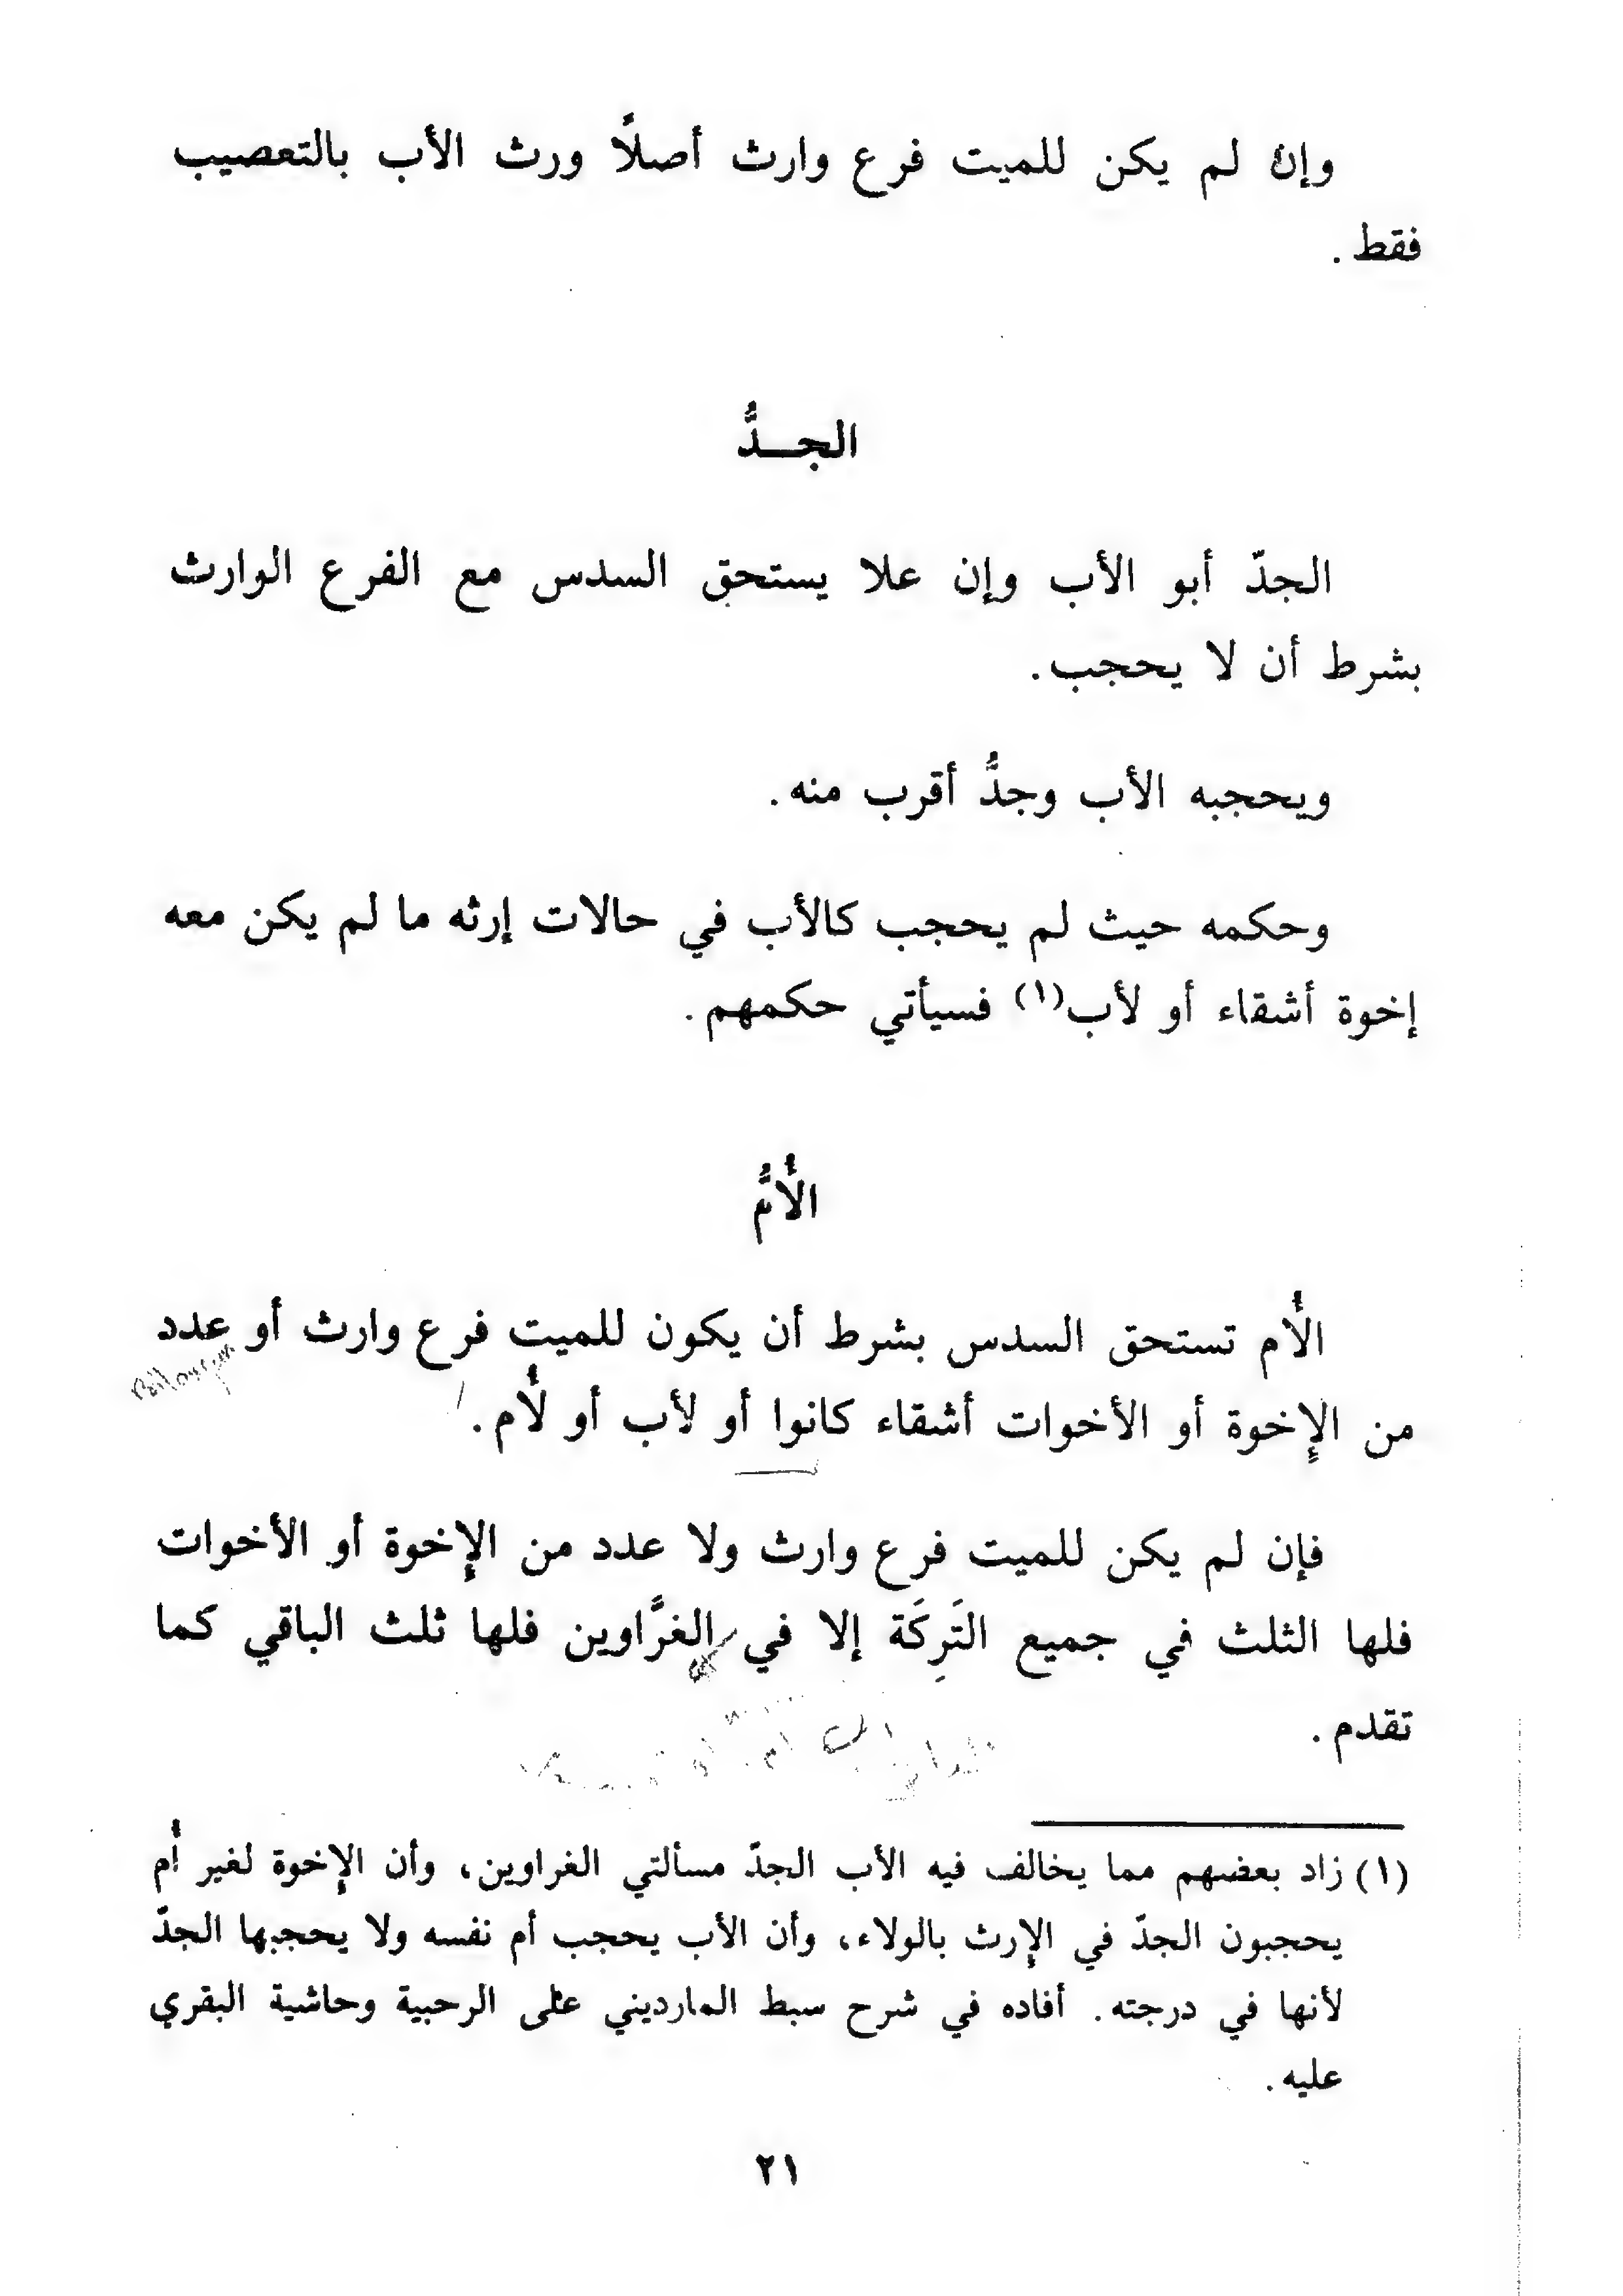 وإن لم يكن للميت فرع وارث أصلاً ورث الأب بالتعصيب
فقط .
الجـــدُّ
الجدّ أبو الأب وإن علا يستحق السدس مع الفرع الوارث
بشرط أن لا يحجب.
ويحجبه الأب وجدٌّ أقرب منه.
وحكمه حيث لم يحجب كالأب في حالات إرثه ما لم يكن معه
إخوة أشقاء أو لأب(١) فسيأتي حكمهم.
الأُمُّ
الأُم تستحق السدس بشرط أن يكون للميت فرع وارث أو عدد
من الإِخوة أو الأخوات أشقاء كانوا أو لأب أو لأُم.
فإن لم يكن للميت فرع وارث ولا عدد من الإِخوة أو الأخوات
فلها الثلث في جميع التَرِكَة إلا في الغرَّاوين فلها ثلث الباقي كما
تقدم.
(١) زاد بعضهم مما يخالف فيه الأب الجدّ مسألتي الغراوين، وأن الإِخوة لغير أُم
يحجبون الجدّ في الإِرث بالولاء، وأن الأب يحجب أم نفسه ولا يحجبها الجدّ
لأنها في درجته. أفاده في شرح سبط المارديني على الرحبية وحاشية البقري
عليه.
٢١